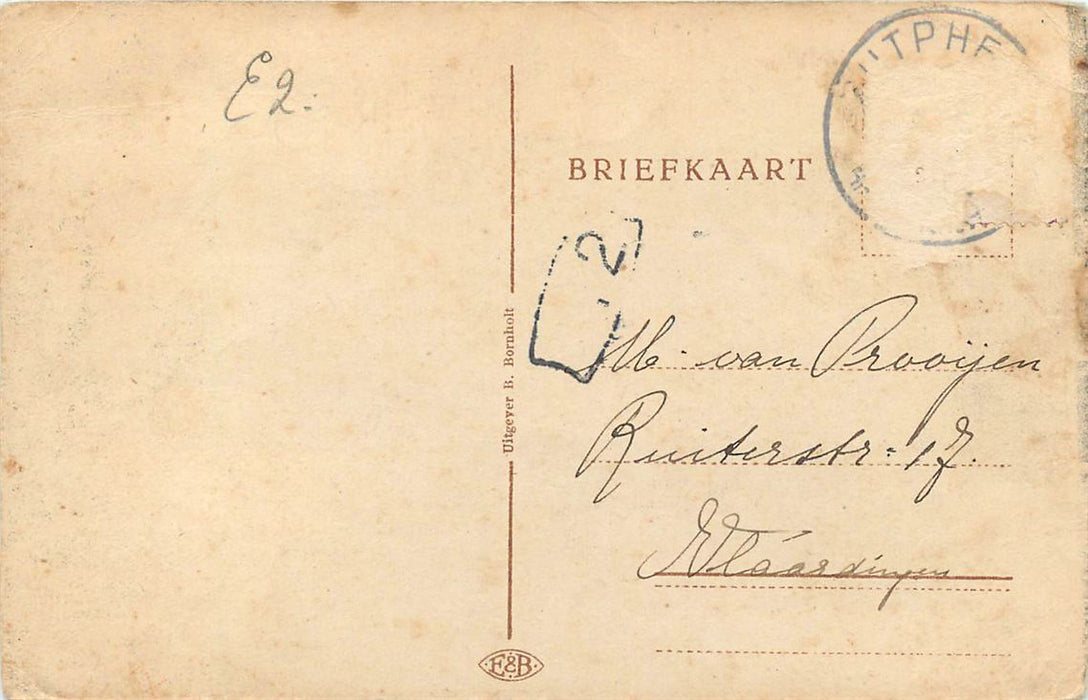 E2.
ZUTPHE
BRIEFKAART
2
Uitgever B. Bornholt
M. van Prooijen
Ruiterstr: 17.
Vlaardingen
E&B